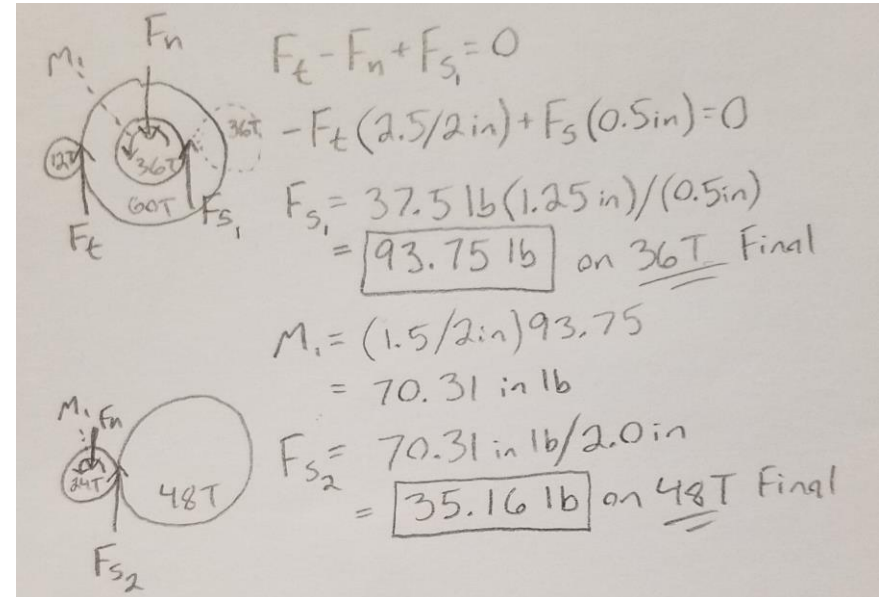 Fn
M₁
36T
12T
36T
60T
Fs₁
Ft
Ft - Fn + Fs₁ = 0
-Ft(2.5/2in) + Fs(0.5in) = 0
Fs₁ = 37.5 lb(1.25 in)/(0.5in)
= 93.75 lb on 36T Final
M₁ = (1.5/2in)93.75
= 70.31 in lb
M₁ Fn
24T
48T
Fs₂
Fs₂ = 70.31 in lb/2.0in
= 35.16 lb on 48T Final